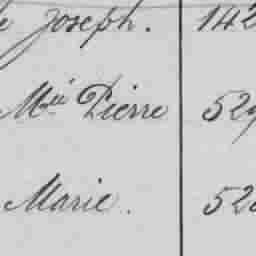 Joseph. 142
Mie Pierre 529
Marie. 52